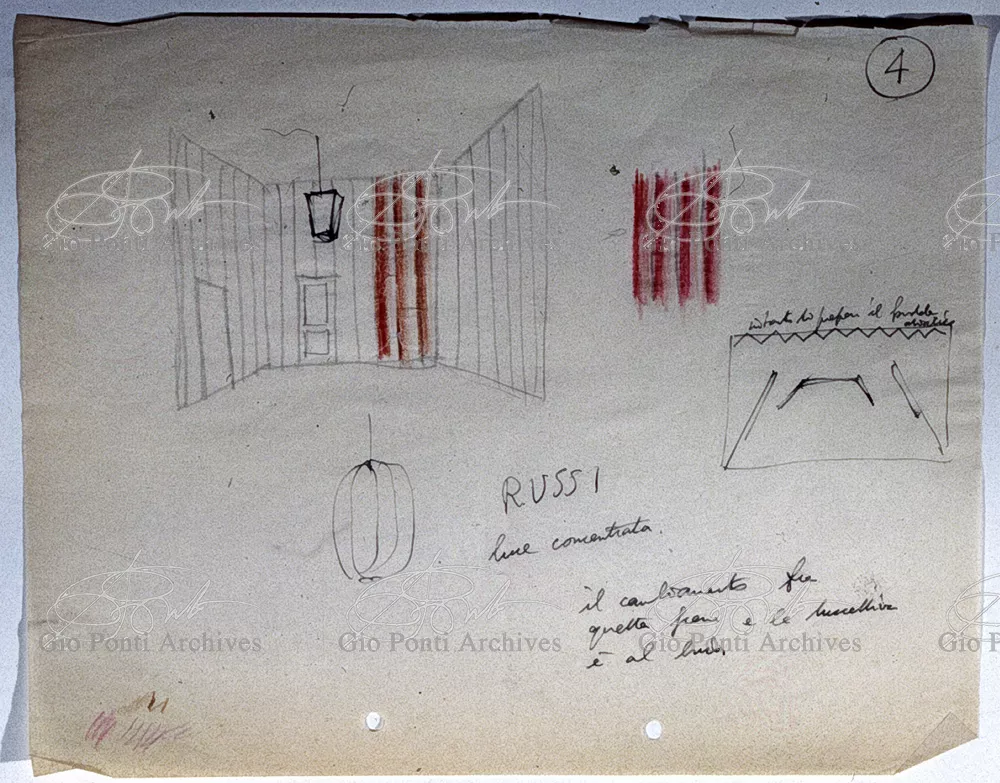 4
il fondale
RUSSI
luce concentrata.
il cambiamento fra
questa scena e la
è al buio.
Gio Ponti Archives
Gio Ponti Archives
Gio Ponti Archives
Gio Ponti Archives
Gio Ponti Archives
Gio Ponti Archives
Gio Ponti Archives
Gio Po